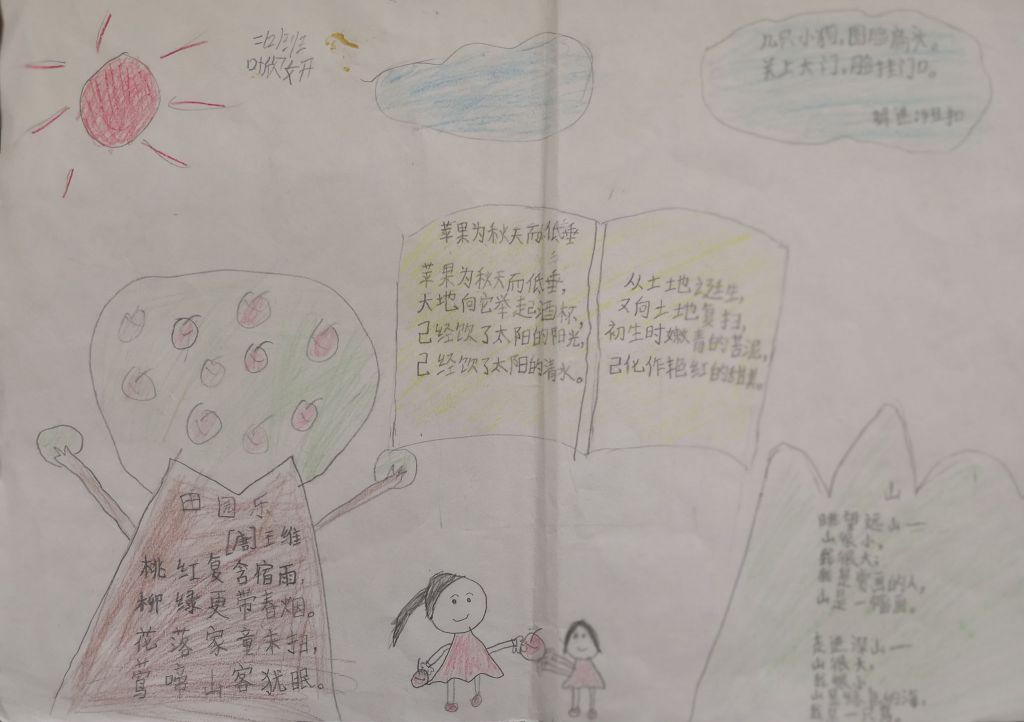 二(2)班
几只小狗,围脸扁头。
关上大门,脸挂门口。
苹果为秋天而低垂
苹果为秋天而低垂,
大地向它举起酒杯,
已经饮了太阳的阳光,
已经饮了太阳的清水。
从土地诞生,
又向土地复扫,
初生时嫩青的苦泥,
已化作艳红的甜果。
田园乐
[唐]王维
桃红复含宿雨,
柳绿更带春烟。
花落家童未扫,
莺啼山客犹眠。
山
眺望远山一
山很小,
我很大;
我是
画的人,
山是一幅画。
走进深山一
山很大,
我很小
山是
的海,